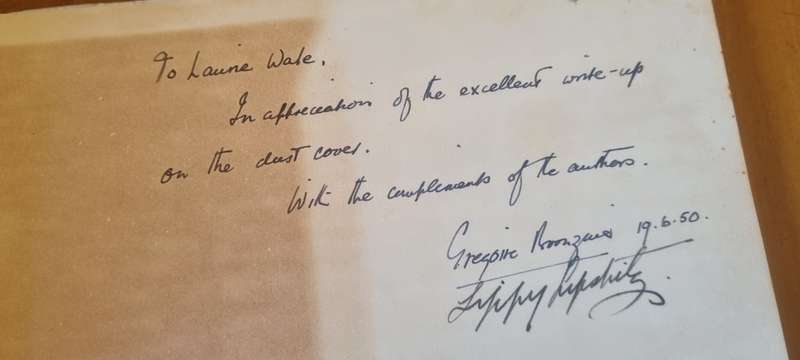 To Laurie Wale.
In appreciation of the excellent write-up
on the dust cover.
With the compliments of the authors.
Gregoire Boonzaier 19.6.50.
Lippy Lipshitz.